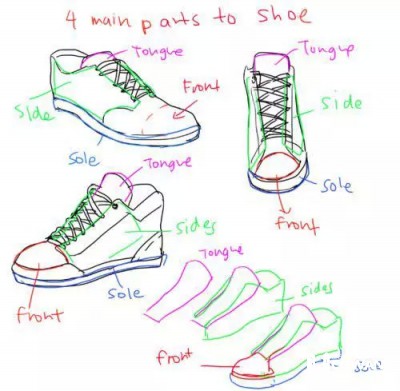 4 main parts to shoe
Tongue
Front
Side
Sole
Tongue
side
Sole
front
Tongue
sides
sole
front
Tongue
sides
front
sole